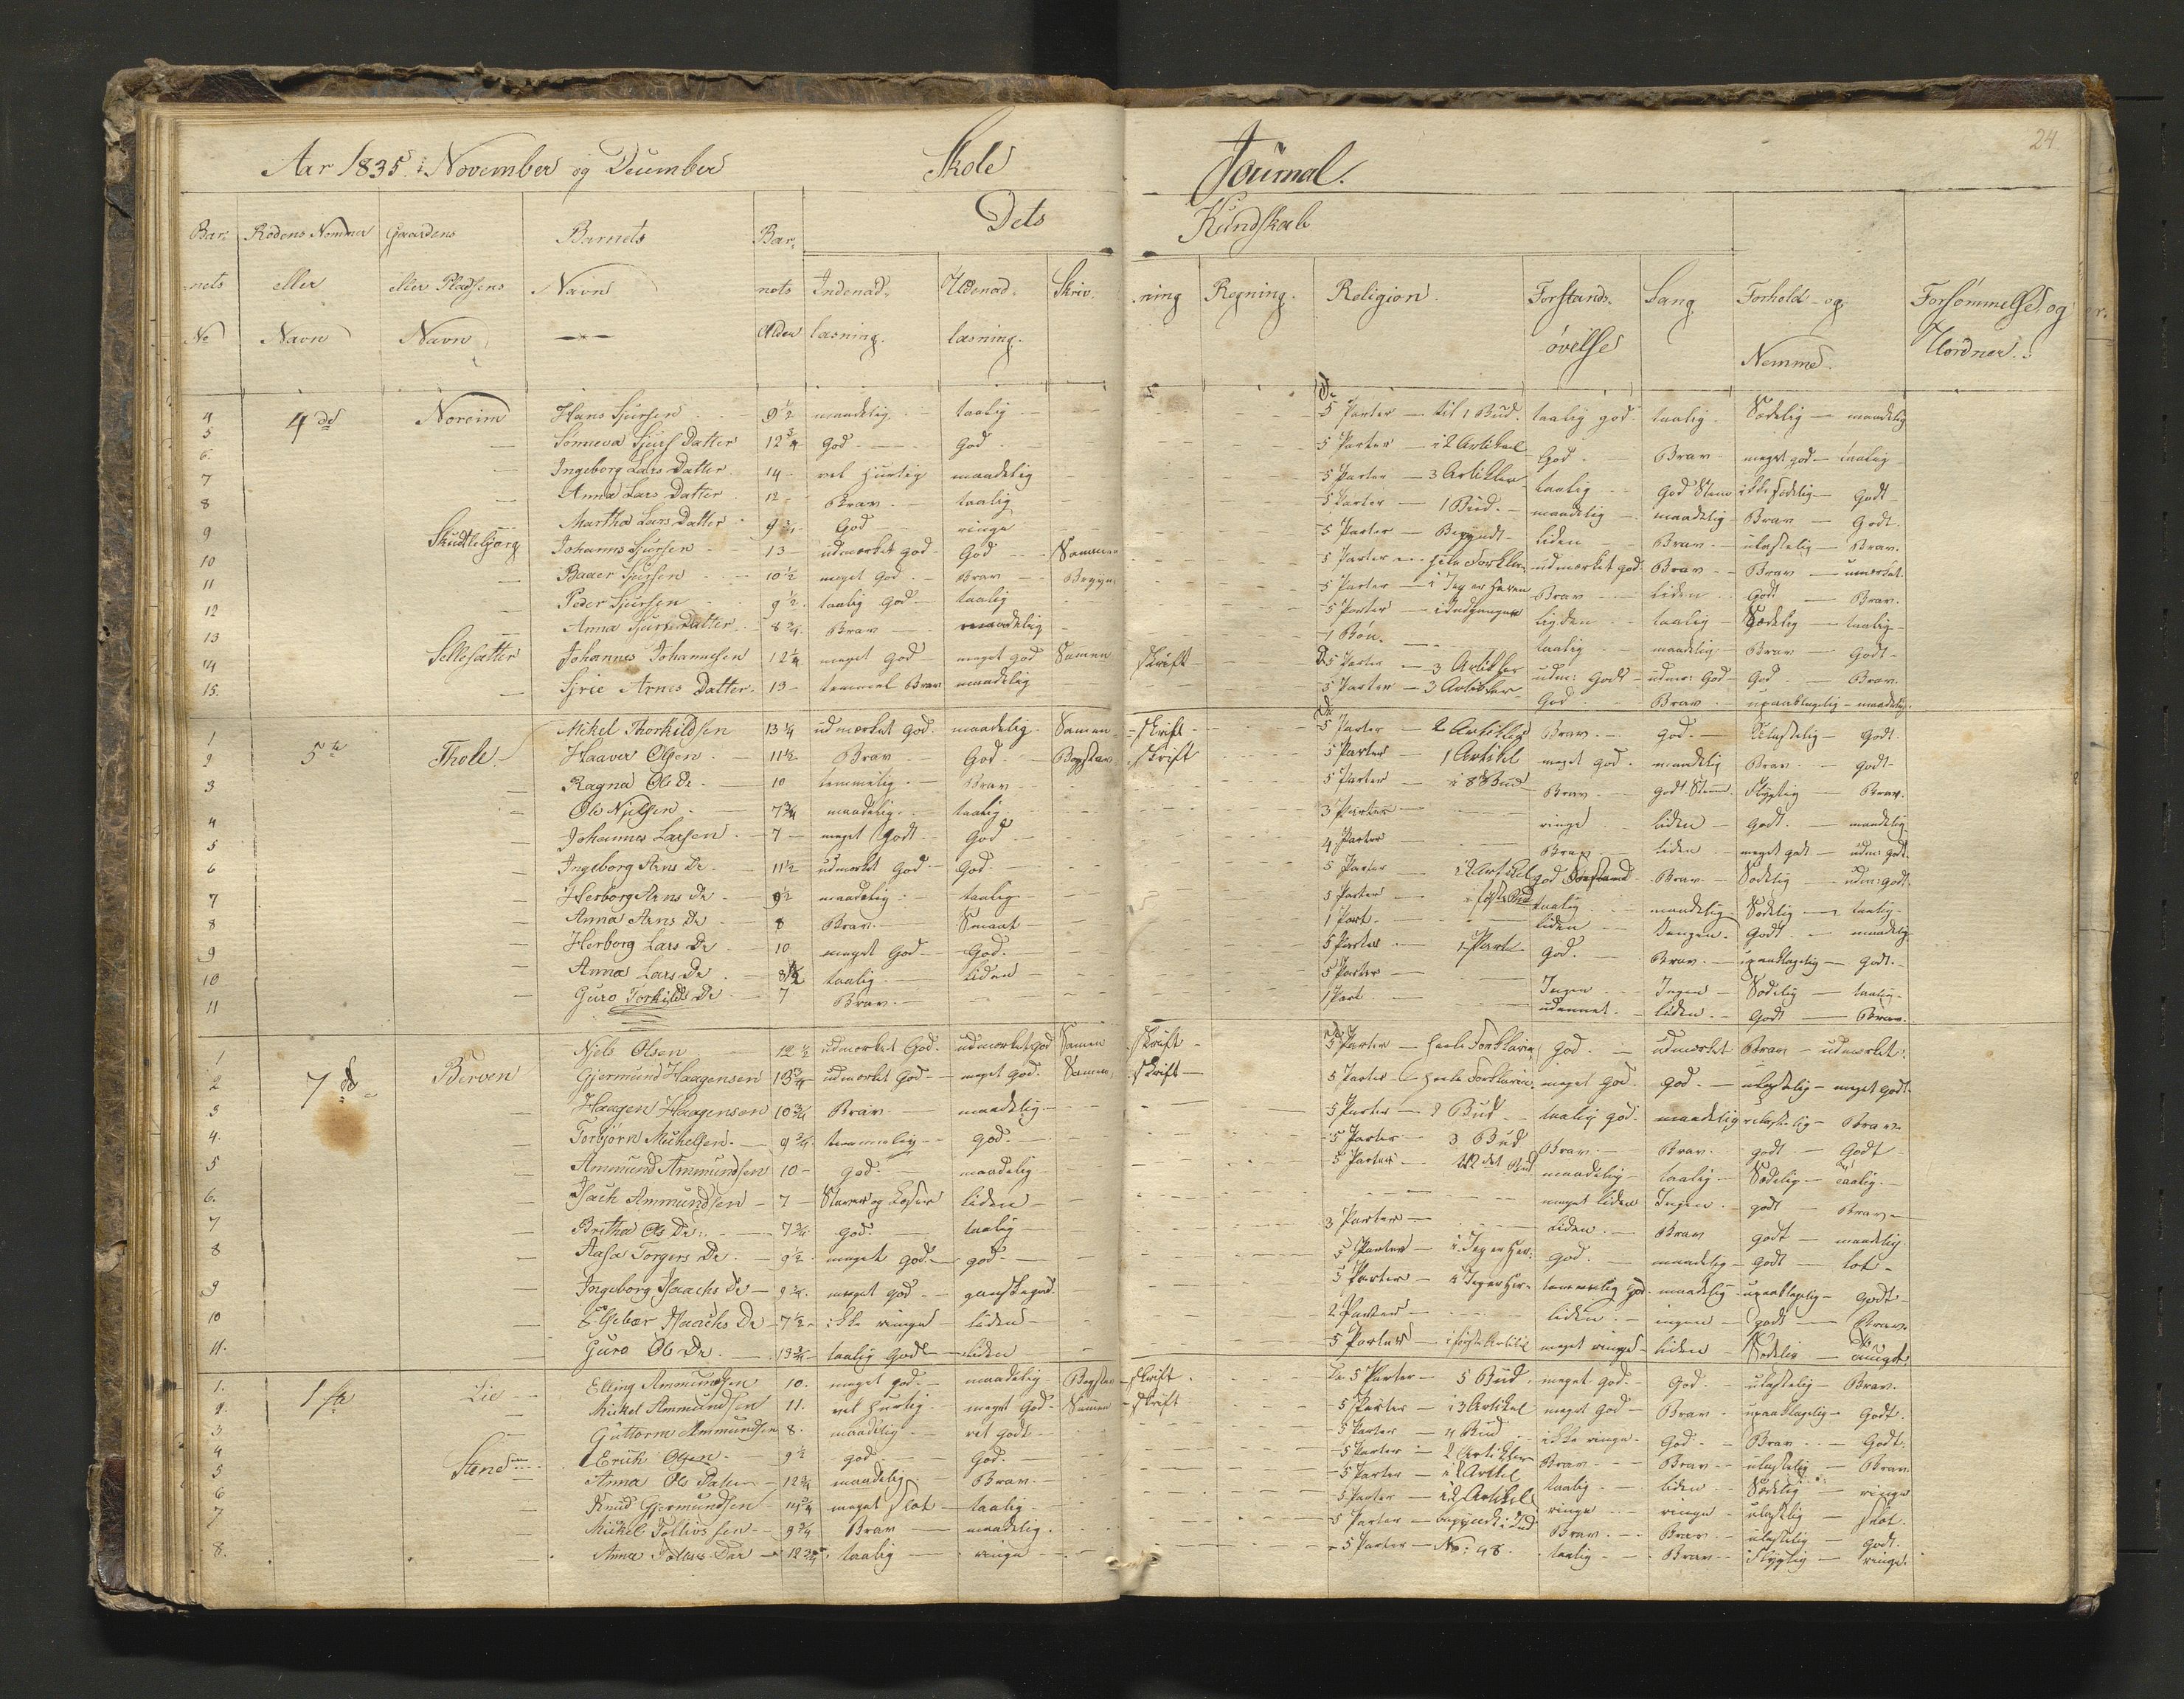 24.
Aar 1835 i November og December Skole Journal.
Dets Kundskab
Bar- Rodens Nommer Gaardens Barnets Bar-
nets eller eller Pladsens Navn nets Indenad- Udenad- Skriv- ning Regning. Religion. Forstands- Sang Forhold- og Forsømmelse og
No Navn Navn Alder læsning. læsning. øvelse Nemme. Uordner.
4 4de Noreim Hans Sjursen 9 1/2 maadelig taalig 5 Parter - til 1 Bud. taalig god taalig Sædelig - maadelig
5 Sønneva Sjurs Datter 12 3/4 God God 5 Parter - i 2 Artikel God Brav meget god - taalig
6 Ingeborg Lars Datter 14 vel hurtig maadelig 5 Parter - 3 Artikler taalig God Stem ikke sædelig - Godt
7 Anna Lars Datter 12 Brav taalig 5 Parter - 1 Bud. maadelig maadelig Brav - Godt.
8 Martha Lars Datter 9 3/4 God ringe 5 Parter - Begyndt liden Brav ulastelig - Brav.
9 Skudtlebjerg Johannes Sjursen 13 udmærket god God Sammen 5 Parter - hele Forklar. udmærket god Brav Brav - umærket
10 Baaer Sjursen 10 1/2 meget God Brav Begyn. 5 Parter - i Jeg er Herren Brav liden Godt - Brav.
11 Peder Sjursen 9 1/2 taalig God taalig 5 Parter - i Indgangen liden taalig Sædelig - taalig
12 Anna Sjurs Datter 8 3/4 Brav maadelig 1 Bøn. taalig maadelig Brav - Godt
13 Sellesætter Johannes Johannessen 12 1/4 meget God meget god Samen skrift 5 Parter - 3 Artikler udm: Godt udmr: God God - Brav.
14 Sirie Arnes Datter 13 temmel Brav maadelig 5 Parter - 3 Artikler God Brav upaaklagelig - maadelig
15.
1 5te Thole Mikel Thorkildsen 13 1/4 udmærket God. maadelig Samen skrift 5 Parter 2 Artikler Brav God. Ulastelig - Godt.
2 Haaver Olsen 11 1/2 Brav God. Bogstav skrift 5 Parter 1 Artikel meget god. maadelig Brav - Godt
3 Ragna Ols Dr 10 temmelig Brav 5 Parter i 8 Bud Brav godt Stem. Flygtig - Brav.
4 Ole Njelsen 7 3/4 maadelig taalig 3 Parter ringe liden Godt. - maadelig
5 Johannes Larsen 7 meget Godt God 4 Parter Brav liden meget godt - udm: godt.
6 Ingeborg Arns Dr 11 1/2 udmærket God God 5 Parter i 2 Artikel god Forstand Brav Sædelig - udm: godt
7 Herborg Arns Dr 9 1/2 maadelig taalig 5 Parter i første Bud taalig maadelig Sædelig - taalig
8 Anna Arns Dr 8 Brav Smaat 1 Part. liden Godt - maadelig
9 Herborg Lars Dr 10 meget God God. 5 Parter 1 Part God. Brav upaaklagelig - godt.
10 Anna Lars Dr 8 1/2 taalig liden 5 Parter Ingen Ingen Sædelig - taalig
11 Guro Torkilds Dr 7 Brav 1 Part liden Godt - Brav.
1 7de Berven Njels Olsen 12 1/2 udmærket God. udmærket god Samen skrift 5 Parter - heele Forklarin God. udmærket Brav - udmærket.
2 Gjermund Haagensen 13 3/4 udmærket God meget God. Samen skrift 5 Parter - heele Forklarin. meget God. God. ulastelig - meget godt.
3 Haagen Haagensen 10 3/4 Brav maadelig 5 Parter - 2 Bud taalig God. maadelig ulastelig - Brav.
4. Torbjørn Michelsen 9 3/4 temmelig God. 5 Parter 3 Bud Brav Brav. godt - Godt
5 Ammund Ammundsen 10 god. maadelig 5 Parter det Bud maadelig taalig Sædelig - taalig
6. Isach Ammundsen 7 Staver og Læser liden meget liden Ingen godt - Brav
7 Britha Ols Dr 7 3/4 god. taalig 3 Parter liden Brav godt - maadelig
8 Aasa Torgers Dr 9 1/2 meget god god. 5 Parter - i Jeg er Her. God. maadelig godt
9 Ingeborg Isaachs Dr 9 3/4 meget god ganske god. 5 Parter - i Jeg er Her. temmelig god maadelig upaaklagelig - Godt
10 Elsebær Isaachs Dr 7 1/2 ikke ringe liden 2 Parter liden ingen godt - Brav.
11. Guro Ols Dr 13 3/4 taalig God liden 5 Parter i første Artikel meget ringe liden Sædelig
1. 1ste Lie Elling Ammundsen 10. meget god maadelig Bogstav skrift 5 Parter 5 Bud. meget God. God. ulastelig - Brav.
2. Mickel Ammundsen 11. vel hurtig meget God Samen skrift 5 Parter - i 3 Artikel meget God Brav upaaklagelig - Godt.
3 Guttorm Ammundsen 8. maadelig ret godt 5 Parter 4 Bud ikke ringe God. Brav - Godt.
4 Stene Erich Olsen 9 1/2 god God. 5 Parter - 2 Artikler Brav Brav ulastelig - Brav
5 Anna Ols Dater 12 3/4 maadelig Brav 5 Parter - i 2 Artkel taalig liden Sædelig - ringe
6 Knud Gjermundsen 11 3/4 meget slet taalig 5 Parter - i 2 Artikel ringe ringe ulastelig - slet.
7 Mickel Tollivssen 9 3/4 Brav maadelig. 5 Parter - begyndt i Ind Brav. Brav ulastelig - godt.
8. Anna Tollivs Dar 12 3/4 taalig ringe 5 Parter - No: 48. taalig Brav flygtig - ringe.